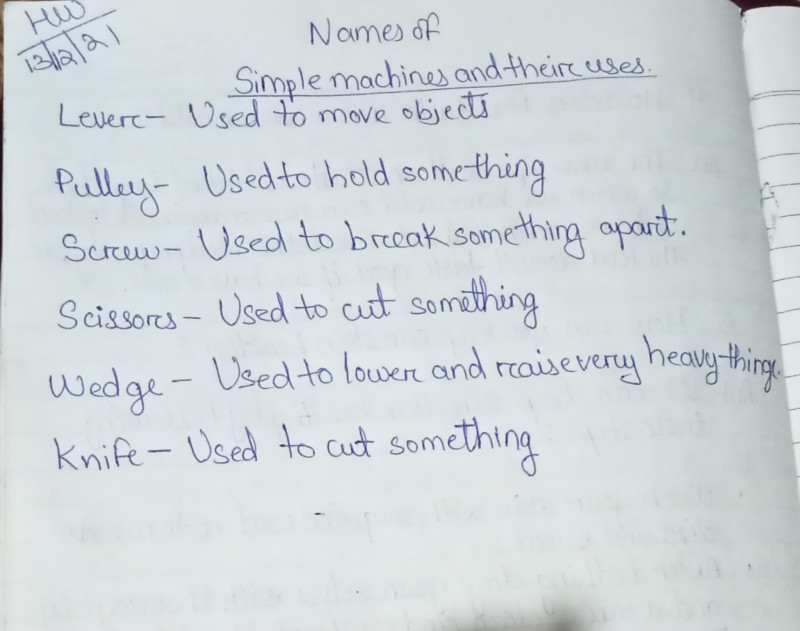 HW
13/12/21
Names of
Simple machines and their uses.
Lever - Used to move objects
Pulley - Used to hold something
Screw - Used to break something apart.
Scissors - Used to cut something
Wedge - Used to lower and raise very heavy things.
Knife - Used to cut something